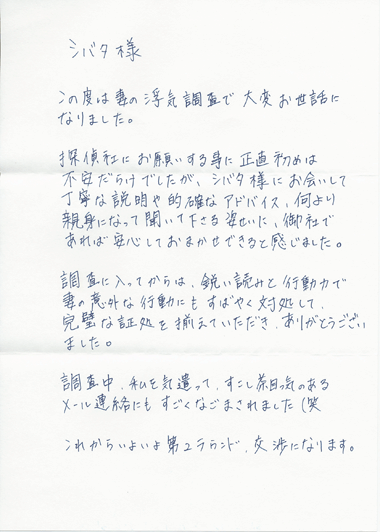 シバタ様
この度は妻の浮気調査で大変お世話に
なりました。
探偵社にお願いする身に正直初めは
不安だらけでしたが、シバタ様にお会いして
丁寧な説明や的確なアドバイス、何より
親身になって聞いて下さる姿せいに、御社で
あれば安心しておまかせできると感じました。
調査に入ってからは、鋭い読みと行動力で
妻の意外な行動にもすばやく対処して、
完璧な証処を揃えていただき、ありがとうござい
ました。
調査中、私を気遣って、すこし茶目っ気のある
メール連絡にもすごくなごまされました(笑
これからいよいよ第2ラウンド、交渉になります。